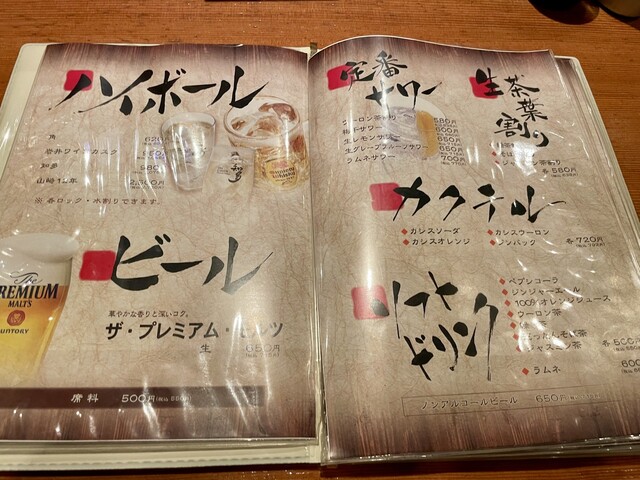 ハイボール
角 620円
岩井ワインカスク
知多 980
山崎12年
※ 各ロック・水割りできます。
知多
ビール
The
PREMIUM
MALT'S
SUNTORY
華やかな香りと深いコク。
ザ・プレミアム・モルツ
生 650円
席料 500円(税込 550円)
定番サワー
ウーロン茶割り 580円
梅干サワー 600円
生レモンサワー 650円
生グレープフルーツサワー 650円
ラムネサワー 700円
生茶葉割り
ジャスミン茶割り
各 580円
カクテル
◆ カシスソーダ ◆ カシスウーロン
◆ カシスオレンジ ◆ ジンバック 各 720円
ソフトドリンク
◆ ペプシコーラ
◆ ジンジャーエール
◆ 100%オレンジジュース
◆ ウーロン茶
◆ ジャスミン茶 各 500円
◆ ラムネ 600
ノンアルコールビール 650円